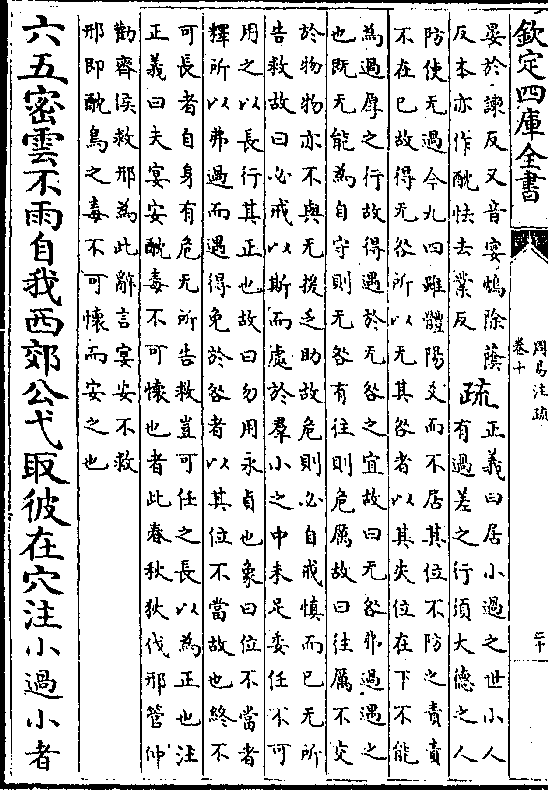 欽定四庫全書
周易注疏
卷十
二十
晏於諫反又音宴鴆除蔭
反本亦作酖怯去業反
疏
正義曰居小過之世小人
有過差之行須大德之人
防使无過今九四雖體陽爻而不居其位不防之責責
不在已故得无咎所以无其咎者以其失位在下不能
為過厚之行故得遇於无咎之宜故曰无咎弗過遇之
也既无能為自守則无咎有往則危厲故曰往厲不交
於物物亦不與无援之助故危則必自戒慎而已无所
告救故曰必戒以斯而處於羣小之中未足委任不可
用之以長行其正也故曰勿用永貞也象曰位不當者
釋所以弗過而遇得免於咎者以其位不當故也終不
可長者自身有危无所告救豈可任之長以為正也注
正義曰夫宴安酖毒不可懷也者此春秋狄伐邢管仲
勸齊侯救邢為此辭言宴安不救
邢即酖鳥之毒不可懷而安之也
六五密雲不雨自我西郊公弋取彼在穴注小過小者